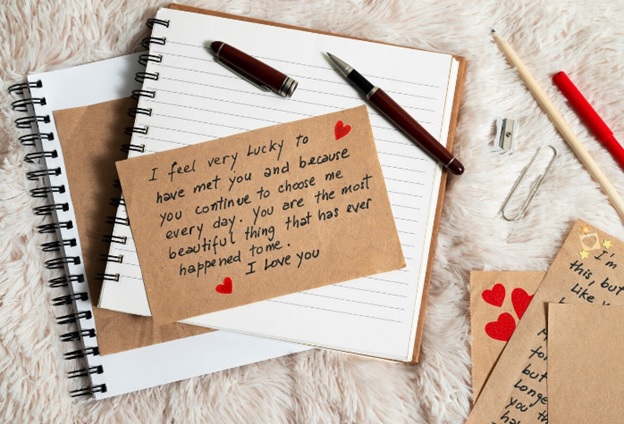 I feel very Lucky to
have met you and because
you continue to choose me
every day. You are the most
beautiful thing that has ever
happened to me.
I Love you
I'm
this, but
Like y
fo
but
Longe
you th
hav